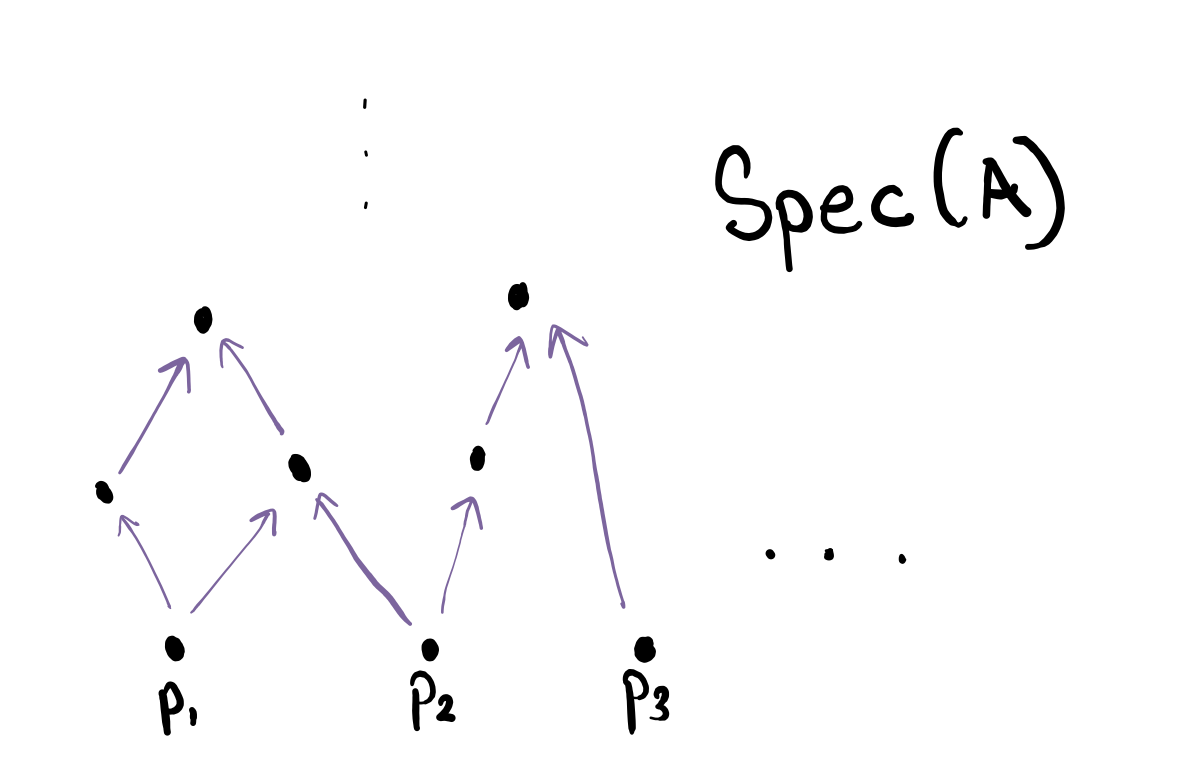 Spec(A)
p₁ p₂ p₃